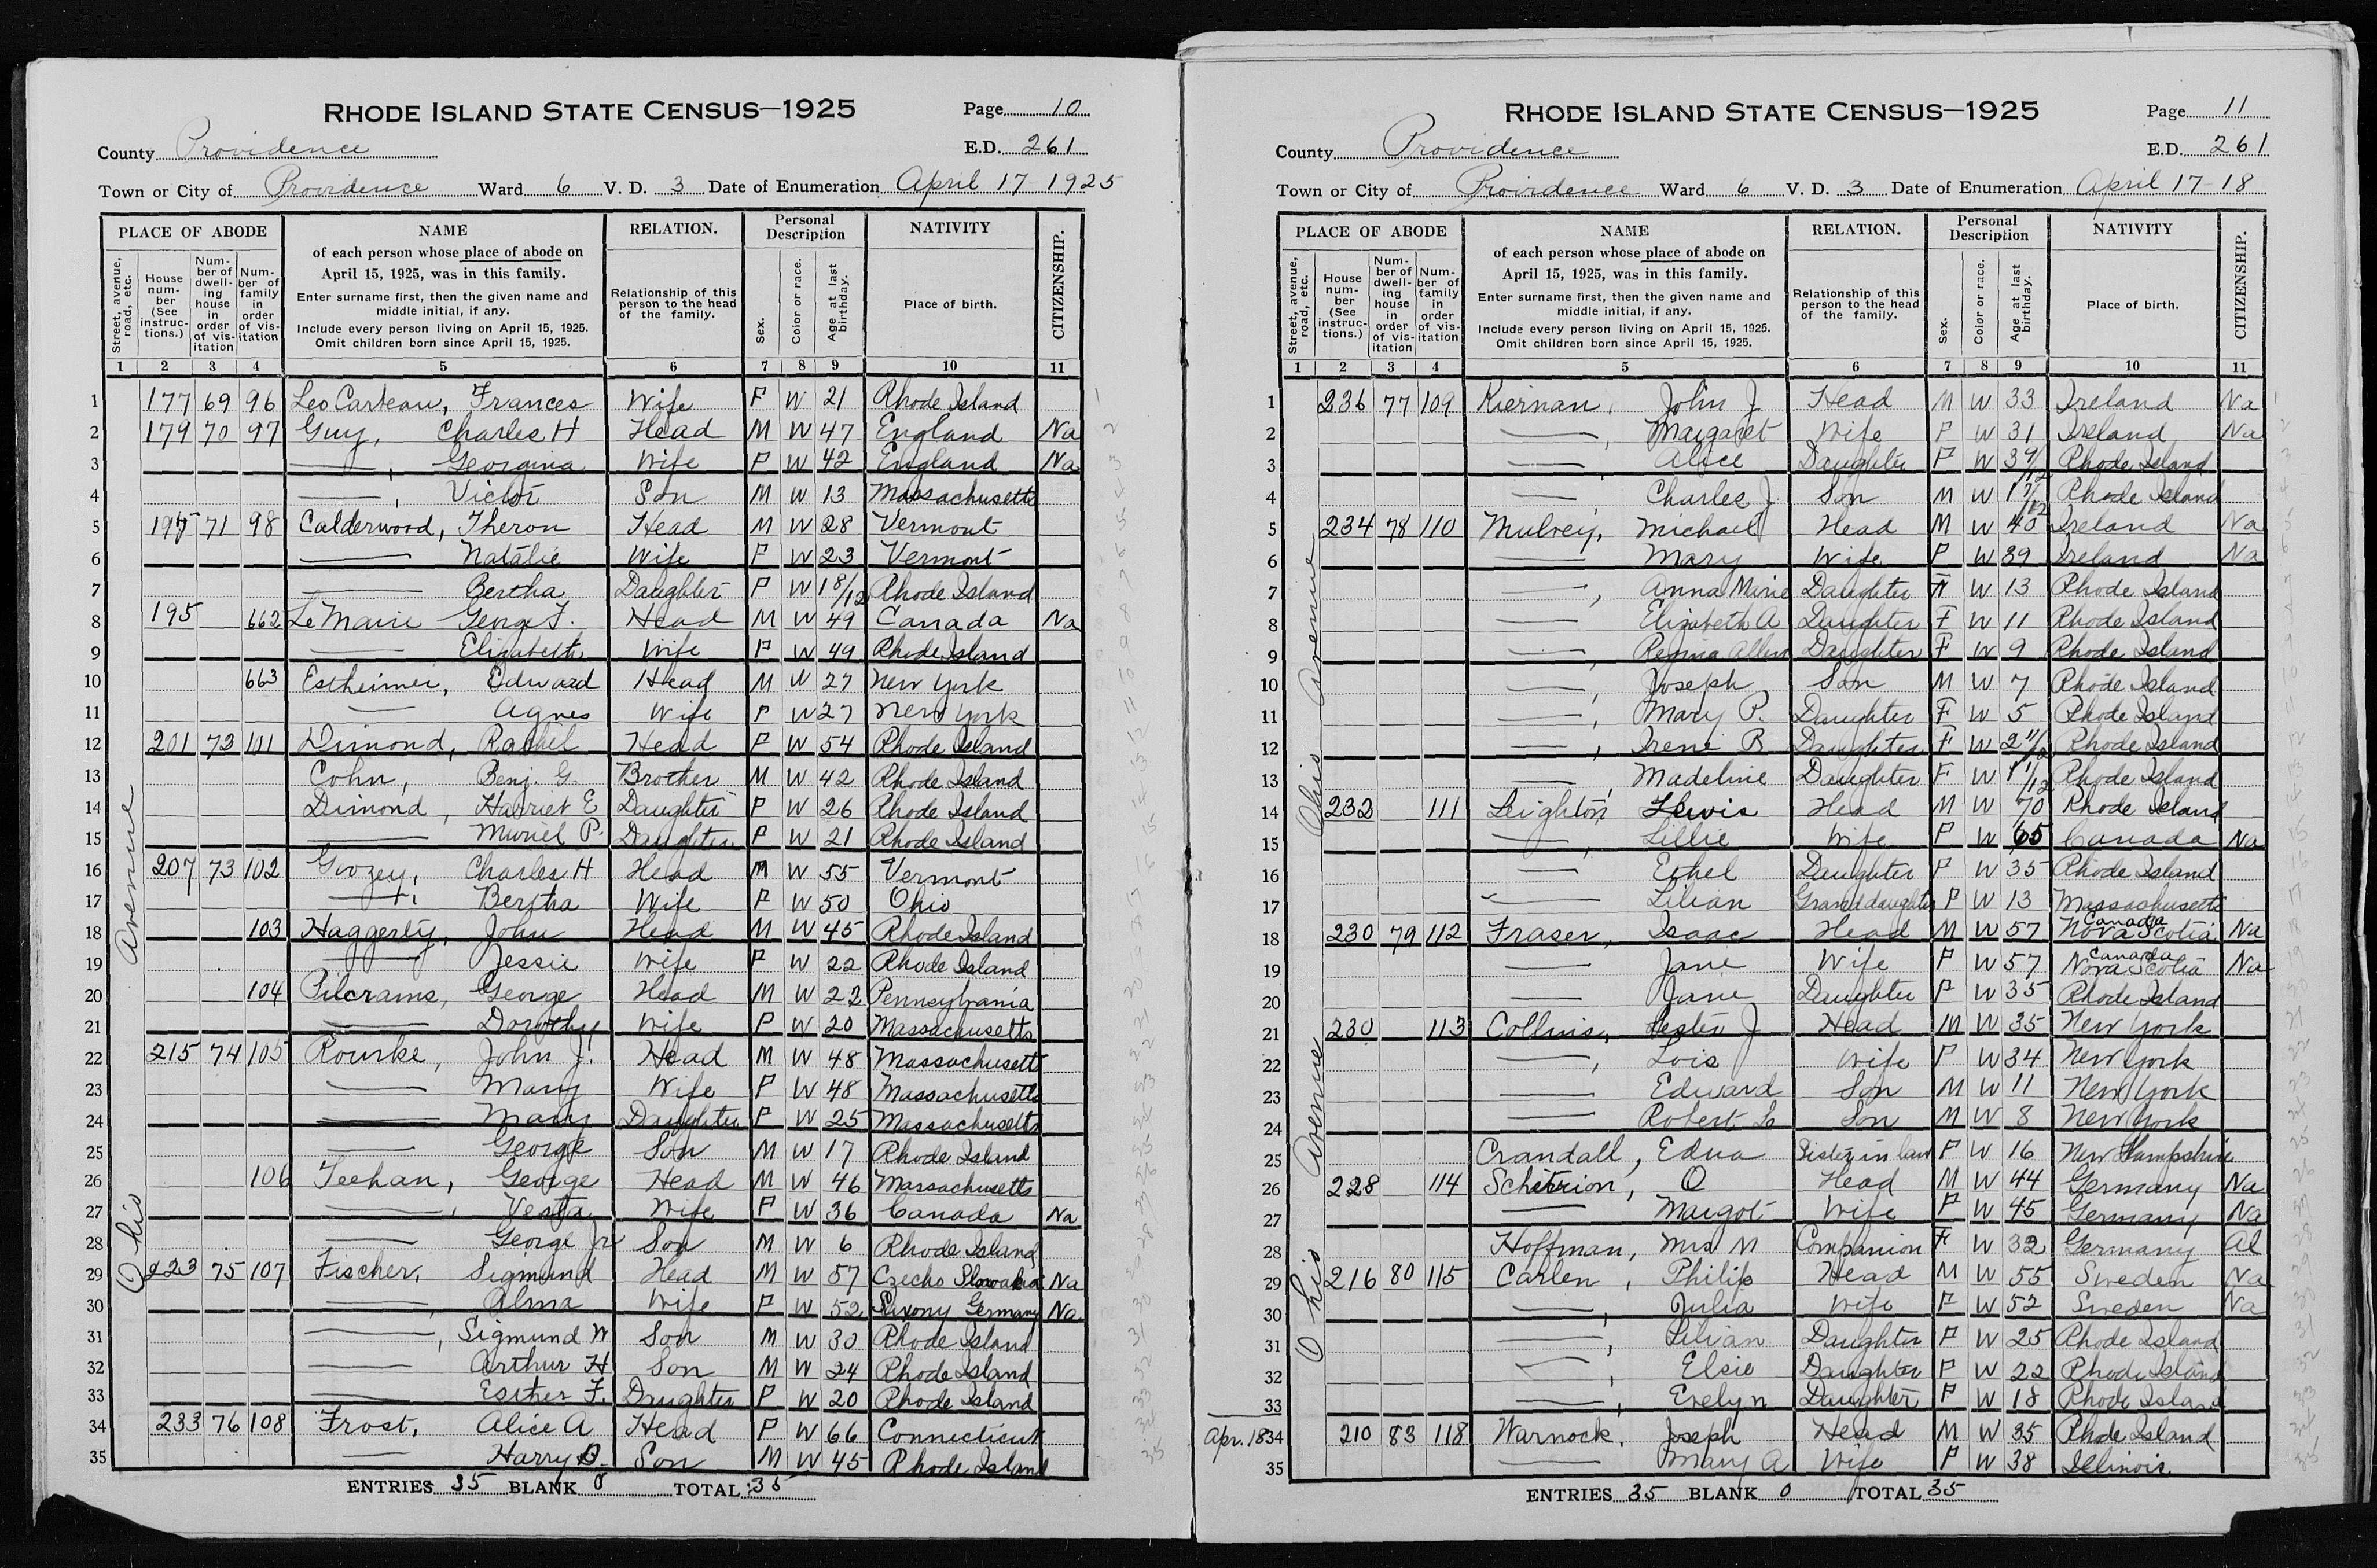 RHODE ISLAND STATE CENSUS—1925
Page 10
County Providence
E.D. 261
Town or City of Providence Ward 6 V. D. 3 Date of Enumeration April 17-1925
PLACE OF ABODE NAME RELATION. Personal Description NATIVITY CITIZENSHIP.
of each person whose place of abode on April 15, 1925, was in this family.
Enter surname first, then the given name and middle initial, if any.
Include every person living on April 15, 1925. Omit children born since April 15, 1925.
Street, avenue, road, etc.
House num-ber (See instruc-tions.)
Num-ber of dwell-ing house in order of vis-itation
Num-ber of family in order of vis-itation
Relationship of this person to the head of the family.
Sex.
Color or race.
Age at last birthday.
Place of birth.
1 2 3 4 5 6 7 8 9 10 11
Ohio Avenue
1 177 69 96 LeoCarteau, Frances Wife F W 21 Rhode Island
2 179 70 97 Guy, Charles H Head M W 47 England Na
3 —, Georgina Wife F W 42 England Na
4 —, Victor Son M W 13 Massachusetts
5 195 71 98 Calderwood, Theron Head M W 28 Vermont
6 — Natalie Wife F W 23 Vermont
7 — Bertha Daughter F W 1 8/12 Rhode Island
8 195 662 LeMaire George T. Head M W 49 Canada Na
9 — Elizabeth Wife F W 49 Rhode Island
10 663 Estheimer, Edward Head M W 27 New York
11 — Agnes Wife F W 27 New York
12 201 73 101 Dimond, Rachel Head F W 54 Rhode Island
13 Cohn, Benj. G. Brother M W 42 Rhode Island
14 Dimond, Harriet E Daughter F W 26 Rhode Island
15 — Muriel P. Daughter F W 21 Rhode Island
16 207 73 102 Goozey, Charles H Head M W 55 Vermont
17 —, Bertha Wife F W 50 Ohio
18 103 Haggerty, John Head M W 45 Rhode Island
19 — Jessie Wife F W 22 Rhode Island
20 104 Pilcrams, George Head M W 22 Pennsylvania
21 — Dorothy Wife F W 20 Massachusetts
22 215 74 105 Rourke, John J. Head M W 48 Massachusetts
23 — Mary Wife F W 48 Massachusetts
24 — Mary Daughter F W 25 Massachusetts
25 — George Son M W 17 Rhode Island
26 106 Teehan, George Head M W 46 Massachusetts
27 —, Vesta Wife F W 36 Canada Na
28 — George Jr Son M W 6 Rhode Island
29 223 75 107 Fischer, Sigmund Head M W 57 Czecho Slovakia Na
30 —, Alma Wife F W 52 Saxony Germany Na
31 —, Sigmund W Son M W 30 Rhode Island
32 — Arthur H Son M W 24 Rhode Island
33 — Esther F. Daughter F W 20 Rhode Island
34 233 76 108 Frost, Alice A Head F W 66 Connecticut
35 — Harry B. Son M W 45 Rhode Island
ENTRIES 35 BLANK 0 TOTAL 35
RHODE ISLAND STATE CENSUS—1925
Page 11
County Providence
E.D. 261
Town or City of Providence Ward 6 V. D. 3 Date of Enumeration April 17-18
PLACE OF ABODE NAME RELATION. Personal Description NATIVITY CITIZENSHIP.
of each person whose place of abode on April 15, 1925, was in this family.
Enter surname first, then the given name and middle initial, if any.
Include every person living on April 15, 1925. Omit children born since April 15, 1925.
Street, avenue, road, etc.
House num-ber (See instruc-tions.)
Num-ber of dwell-ing house in order of vis-itation
Num-ber of family in order of vis-itation
Relationship of this person to the head of the family.
Sex.
Color or race.
Age at last birthday.
Place of birth.
1 2 3 4 5 6 7 8 9 10 11
Ohio Avenue
Ohio Avenue
1 236 77 109 Kiernan, John J. Head M W 33 Ireland Na
2 —, Margaret Wife F W 31 Ireland Na
3 —, Alice Daughter F W 3 7/12 Rhode Island
4 —, Charles J. Son M W 1 7/12 Rhode Island
5 234 78 110 Mulvey, Michael Head M W 40 Ireland Na
6 — Mary Wife F W 39 Ireland Na
7 —, Anna Marie Daughter F W 13 Rhode Island
8 — Elizabeth A Daughter F W 11 Rhode Island
9 —, Regina Daughter F W 9 Rhode Island
10 —, Joseph Son M W 7 Rhode Island
11 —, Mary P. Daughter F W 5 Rhode Island
12 —, Irene B Daughter F W 2 11/12 Rhode Island
13 —, Madeline Daughter F W 1 1/12 Rhode Island
14 232 111 Leighton, Lewis Head M W 70 Rhode Island
15 —, Lillie Wife F W 65 Canada Na
16 — Ethel Daughter F W 35 Rhode Island
17 — Lilian Granddaughter F W 13 Massachusetts
18 230 79 112 Fraser, Isaac Head M W 57 Canada Nova Scotia Na
19 — Jane Wife F W 57 Canada Nova Scotia Na
20 — Jane Daughter F W 35 Rhode Island
21 230 113 Collins, Lester J Head M W 35 New York
22 —, Lois Wife F W 34 New York
23 — Edward Son M W 11 New York
24 — Robert L Son M W 8 New York
25 Crandall, Edna Sister in law F W 16 New Hampshire
26 228 114 O Head M W 44 Germany Na
27 — Margot Wife F W 45 Germany Na
28 Hoffman, Mrs M Companion F W 32 Germany Al
29 216 80 115 Carlen, Philip Head M W 55 Sweden Na
30 —, Julia Wife F W 52 Sweden Na
31 —, Lilian Daughter F W 25 Rhode Island
32 —, Elsie Daughter F W 22 Rhode Island
33 —, Evelyn Daughter F W 18 Rhode Island
Apr. 18 34 210 83 118 Warnock, Joseph Head M W 35 Rhode Island
35 — Mary A Wife F W 38 Illinois
ENTRIES 35 BLANK 0 TOTAL 35